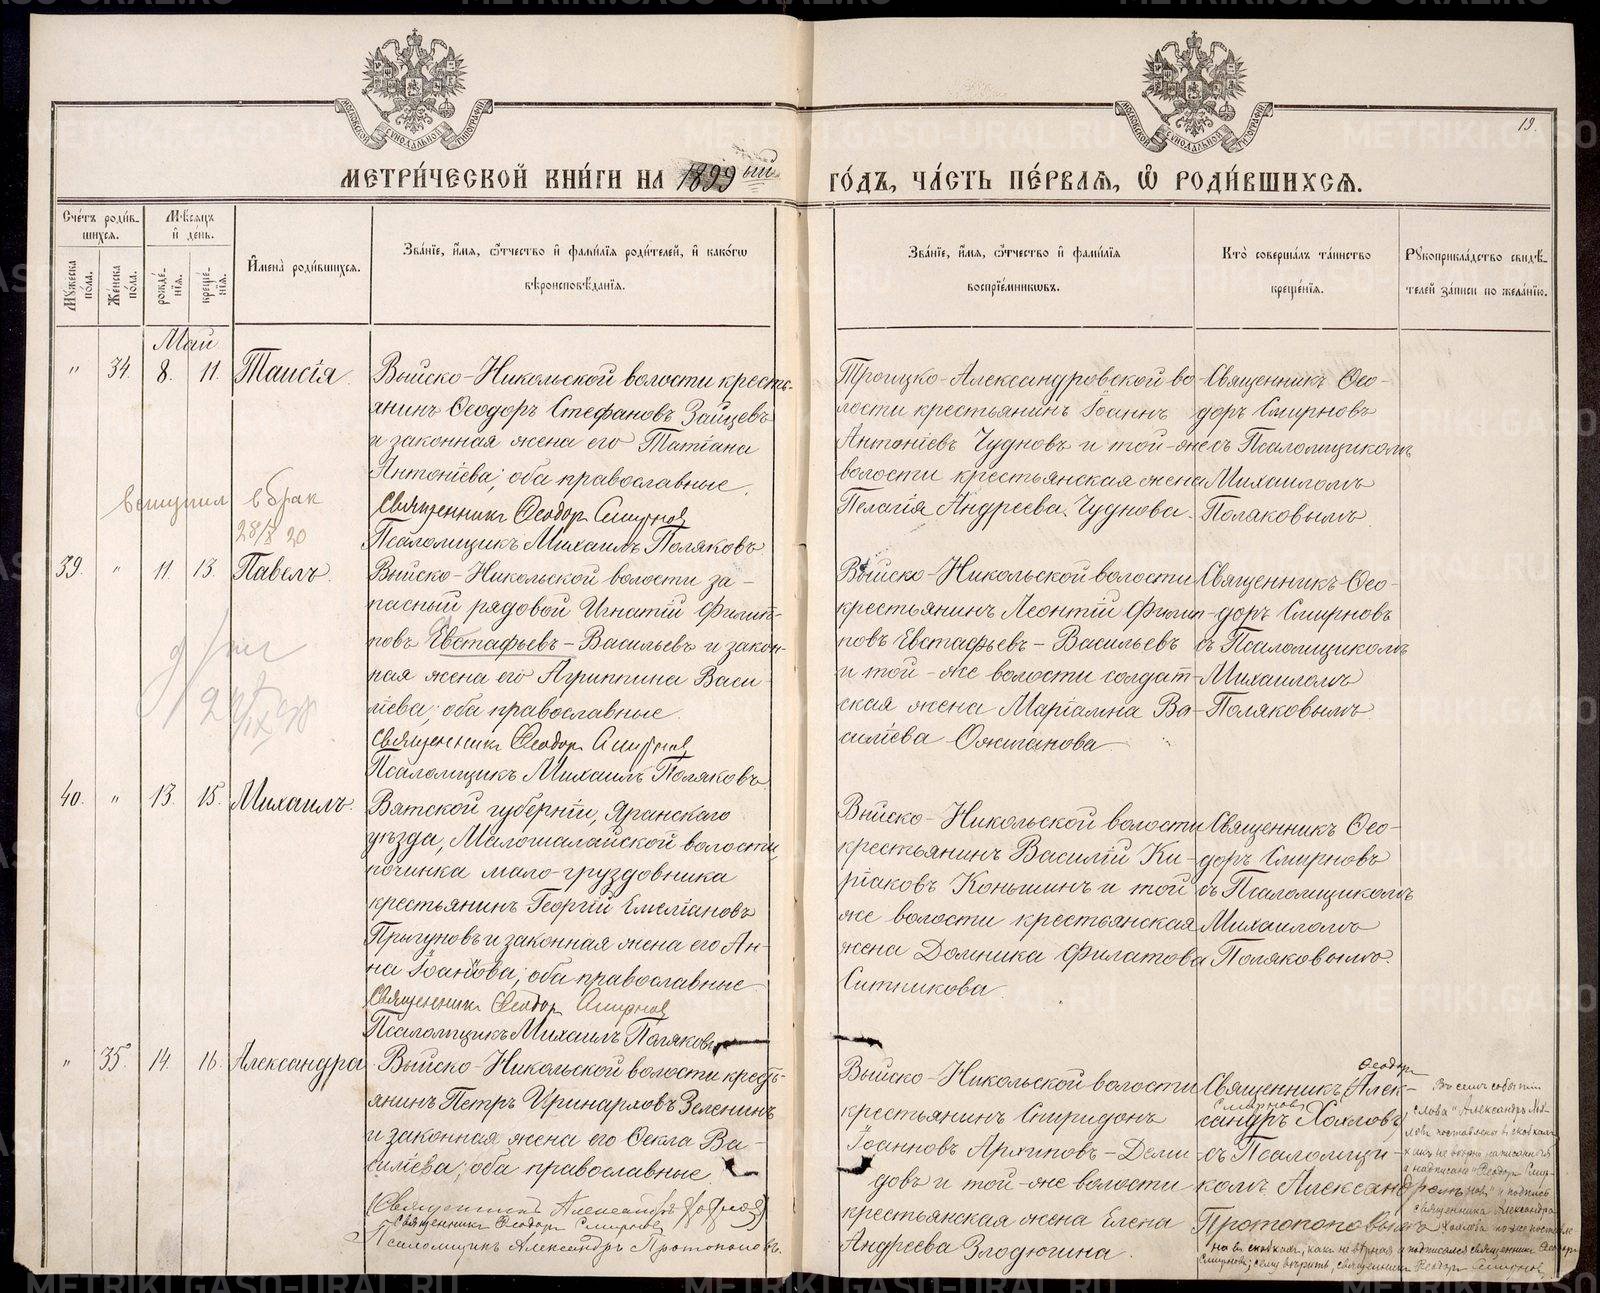 19.
МЕТРИ́ЧЕСКОЙ КНИ́ГИ НА 1899ый ГО́ДЪ, ЧА́СТЬ ПЕ́РВАѦ, Ѿ РОДИ́ВШИХСѦ.
Сче́тъ роди́вшихся.
Мѣ́сяцъ и де́нь.
Имена̀ роди́вшихся.
Зва́нїе, и́мя, ѻ҆́тчество и҆ фами́лїя роди́телей, и҆ како́гѡ вѣроисповѣ́данїя.
Зва́нїе, и́мя, ѻ҆́тчество и҆ фами́лїя воспрїе́мниковъ.
Кто̀ соверша́лъ та́инство креще́нїя.
Рукоприкла́дство свидѣ́телей за́писи по жела́нїю.
Му́жеска по́ла.
Же́нска по́ла.
рожде́нїя.
креще́нїя.
Май
" 34. 8. 11. Таисія.
Выйско-Никольской волости кресть-
янинъ Ѳеодоръ Стефановъ Зайцевъ
и законная жена его Татіана
Антоніева; оба православные.
Священник Ѳеодор Смирнов
Псаломщикъ Михаилъ Поляковъ.
Троицко-Александровской во-
лости крестьянинъ Іоаннъ
Антоніевъ Чудновъ и той-же
волости крестьянская жена
Пелагія Андреева Чуднова.
Священникъ Ѳео-
доръ Смирновъ
съ Псаломщикомъ
Михаиломъ
Поляковымъ.
вступил в брак
28/8 20
39. " 11. 13. Павелъ.
Выйско-Никольской волости за-
пасный рядовой Игнатій Филип-
повъ Евстафьевъ-Васильевъ и закон-
ная жена его Агриппина Васи-
ліева; оба православные.
Священник Ѳеодор Смирнов
Псаломщикъ Михаилъ Поляковъ.
Выйско-Никольской волости
крестьянинъ Леонтій Филип-
повъ Евстафьевъ-Васильевъ
и той-же волости солдат-
ская жена Маріамна Ва-
силіева Ожиганова
Священникъ Ѳео-
доръ Смирновъ
съ Псаломщикомъ
Михаиломъ
Поляковымъ
40. " 13. 15. Михаилъ.
Вятской губерніи, Яранскаго
уѣзда, Малошалайской волости,
починка мало-груздовника
крестьянинъ Георгій Емеліановъ
Прыгуновъ и законная жена его Ан-
на Іоанова; оба православные.
Священник Ѳеодор Смирнов
Псаломщикъ Михаилъ Поляковъ
Выйско-Никольской волости
крестьянинъ Василій Ки-
ріаковъ Коньшинъ и той
же волости крестьянская
жена Домника Филатова
Ситникова.
Священникъ Ѳео-
доръ Смирновъ
съ Псаломщикомъ
Михаиломъ
Поляковымъ.
" 35. 14. 16. Александра
Выйско-Никольской волости кресть-
янинъ Петръ Иринарховъ Зеленинъ
и законная жена его Ѳекла Ва-
силіева; оба православные.
(Священник Александръ Хохлов)
Священникъ Ѳеодор Смирнов
Псаломщикъ Александръ Протопоповъ.
Выйско-Никольской волости
крестьянинъ Спиридонъ
Іоанновъ Архиповъ-Деми-
довъ и той-же волости
крестьянская жена Елена
Андреева Злодюгина.
Ѳеодор
Священникъ (Алек-
Смирновъ
сандръ Хохловъ)
съ Псаломщи-
комъ Александромъ
Протопоповымъ
Въ семъ событіи
слова "Александръ Хох-
ловъ" поставлены въ скобкахъ
какъ не вѣрно написанныя
и надписано "Ѳеодоръ Смир-
новъ" и подпись
священника Александра
Хохлова
на въ скобкахъ, какъ не вѣрная и подписался священник Ѳеодоръ
Смирновъ; сему вѣрить, священник Ѳеодор Смирнов
METRIKI.GASO-URAL.RU